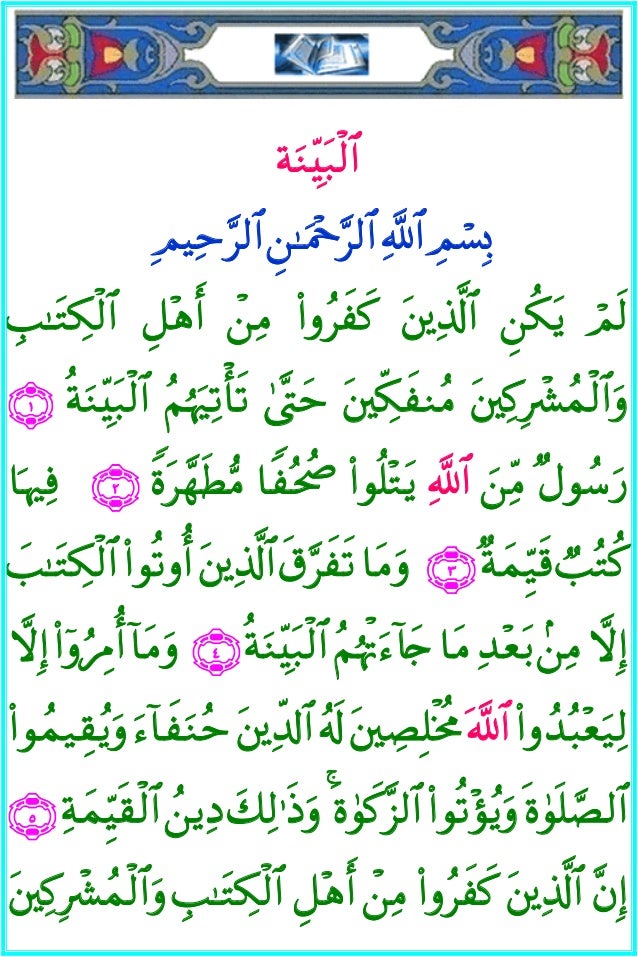 ٱلْبَيِّنَة
بِسْمِ ٱللَّهِ ٱلرَّحْمَـٰنِ ٱلرَّحِيمِ
لَمْ يَكُنِ ٱلَّذِينَ كَفَرُوا۟ مِنْ أَهْلِ ٱلْكِتَـٰبِ
وَٱلْمُشْرِكِينَ مُنفَكِّينَ حَتَّىٰ تَأْتِيَهُمُ ٱلْبَيِّنَةُ ١
رَسُولٌ مِّنَ ٱللَّهِ يَتْلُوا۟ صُحُفًا مُّطَهَّرَةً ٢ فِيهَا
كُتُبٌ قَيِّمَةٌ ٣ وَمَا تَفَرَّقَ ٱلَّذِينَ أُوتُوا۟ ٱلْكِتَـٰبَ
إِلَّا مِنۢ بَعْدِ مَا جَآءَتْهُمُ ٱلْبَيِّنَةُ ٤ وَمَآ أُمِرُوٓا۟ إِلَّا
لِيَعْبُدُوا۟ ٱللَّهَ مُخْلِصِينَ لَهُ ٱلدِّينَ حُنَفَآءَ وَيُقِيمُوا۟
ٱلصَّلَوٰةَ وَيُؤْتُوا۟ ٱلزَّكَوٰةَ ۚ وَذَٰلِكَ دِينُ ٱلْقَيِّمَةِ ٥
إِنَّ ٱلَّذِينَ كَفَرُوا۟ مِنْ أَهْلِ ٱلْكِتَـٰبِ وَٱلْمُشْرِكِينَ